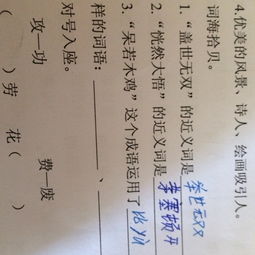 4.优美的风景、诗人、绘画吸引人。
词海拾贝。
1. “盖世无双”的近义词是 举世无双
2. “恍然大悟”的近义词是 茅塞顿开
3. “呆若木鸡”这个成语运用了 比喻
样的词语：________、
对号入座。
攻—功 费—废
( )劳 花( )